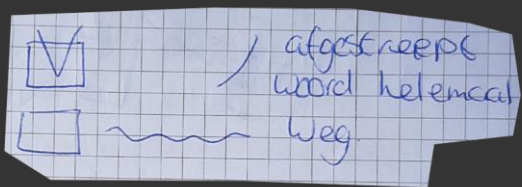 afgestreept
woord helemaal
weg